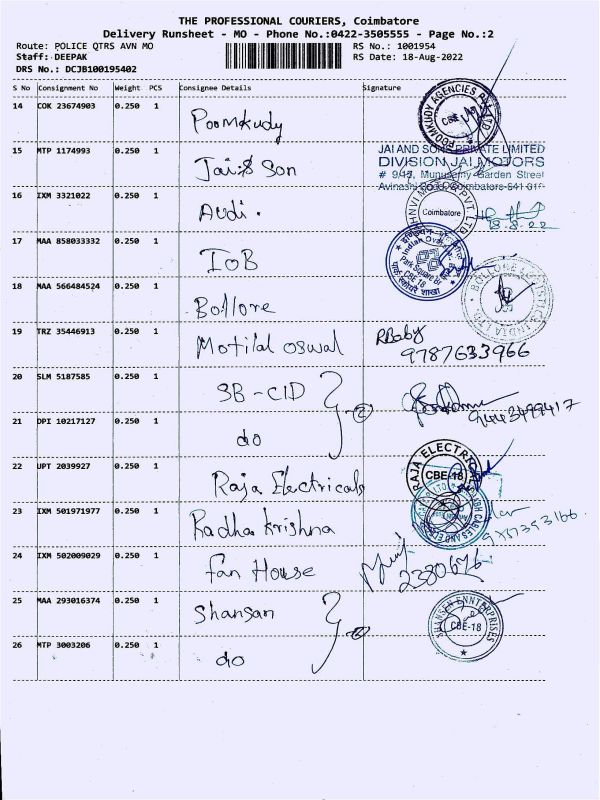 THE PROFESSIONAL COURIERS, Coimbatore
Delivery Runsheet - MO - Phone No.:0422-3505555 - Page No.:2
Route: POLICE QTRS AVN MO
RS No.: 1001954
Staff: DEEPAK
RS Date: 18-Aug-2022
DRS No.: DCJB100195402
S No Consignment No Weight PCS Consignee Details Signature
14 COK 23674903 0.250 1 Poomkudy
POOMKUDY AGENCIES PVT LTD
CBE
15 MTP 1174993 0.250 1 Jai & Son
JAI AND SONS PRIVATE LIMITED
DIVISION JAI MOTORS
Garden Street
16 IXM 3321022 0.250 1 Audi.
Coimbatore
18.8.22
17 MAA 858033332 0.250 1 IOB
CBE 18
18 MAA 566484524 0.250 1 Bollore
19 TRZ 35446913 0.250 1 Motilal oswal
RBaby
9787633966
20 SLM 5187585 0.250 1 SB-CID
9443499417
21 DPI 10217127 0.250 1 do
22 UPT 2039927 0.250 1 Raja Electricals
RAJA ELECTRICALS
CBE-18
23 IXM 501971977 0.250 1 Radha krishna
24 IXM 502009029 0.250 1 fan House
2380676
25 MAA 293016374 0.250 1 Shansan
SHANSEN ENNTERPRISES
CBE-18
26 MTP 3003206 0.250 1 do